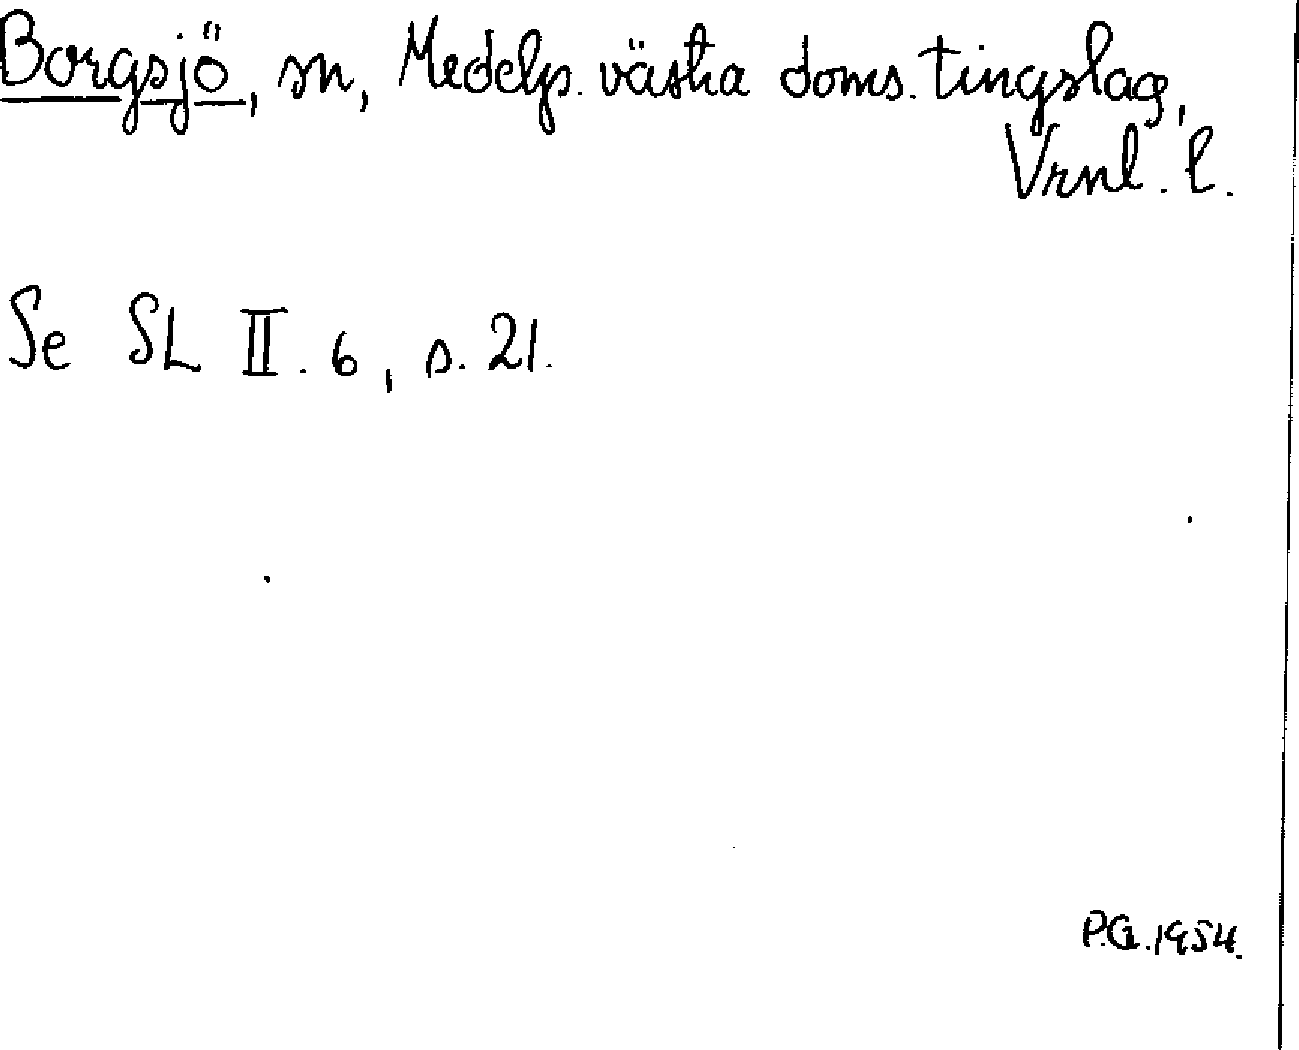 Borgsjö, sn, Medelp. västra doms. tingslag,
Vrnl. l.
Se SL II. 6, s. 21.
P.G. 1954.